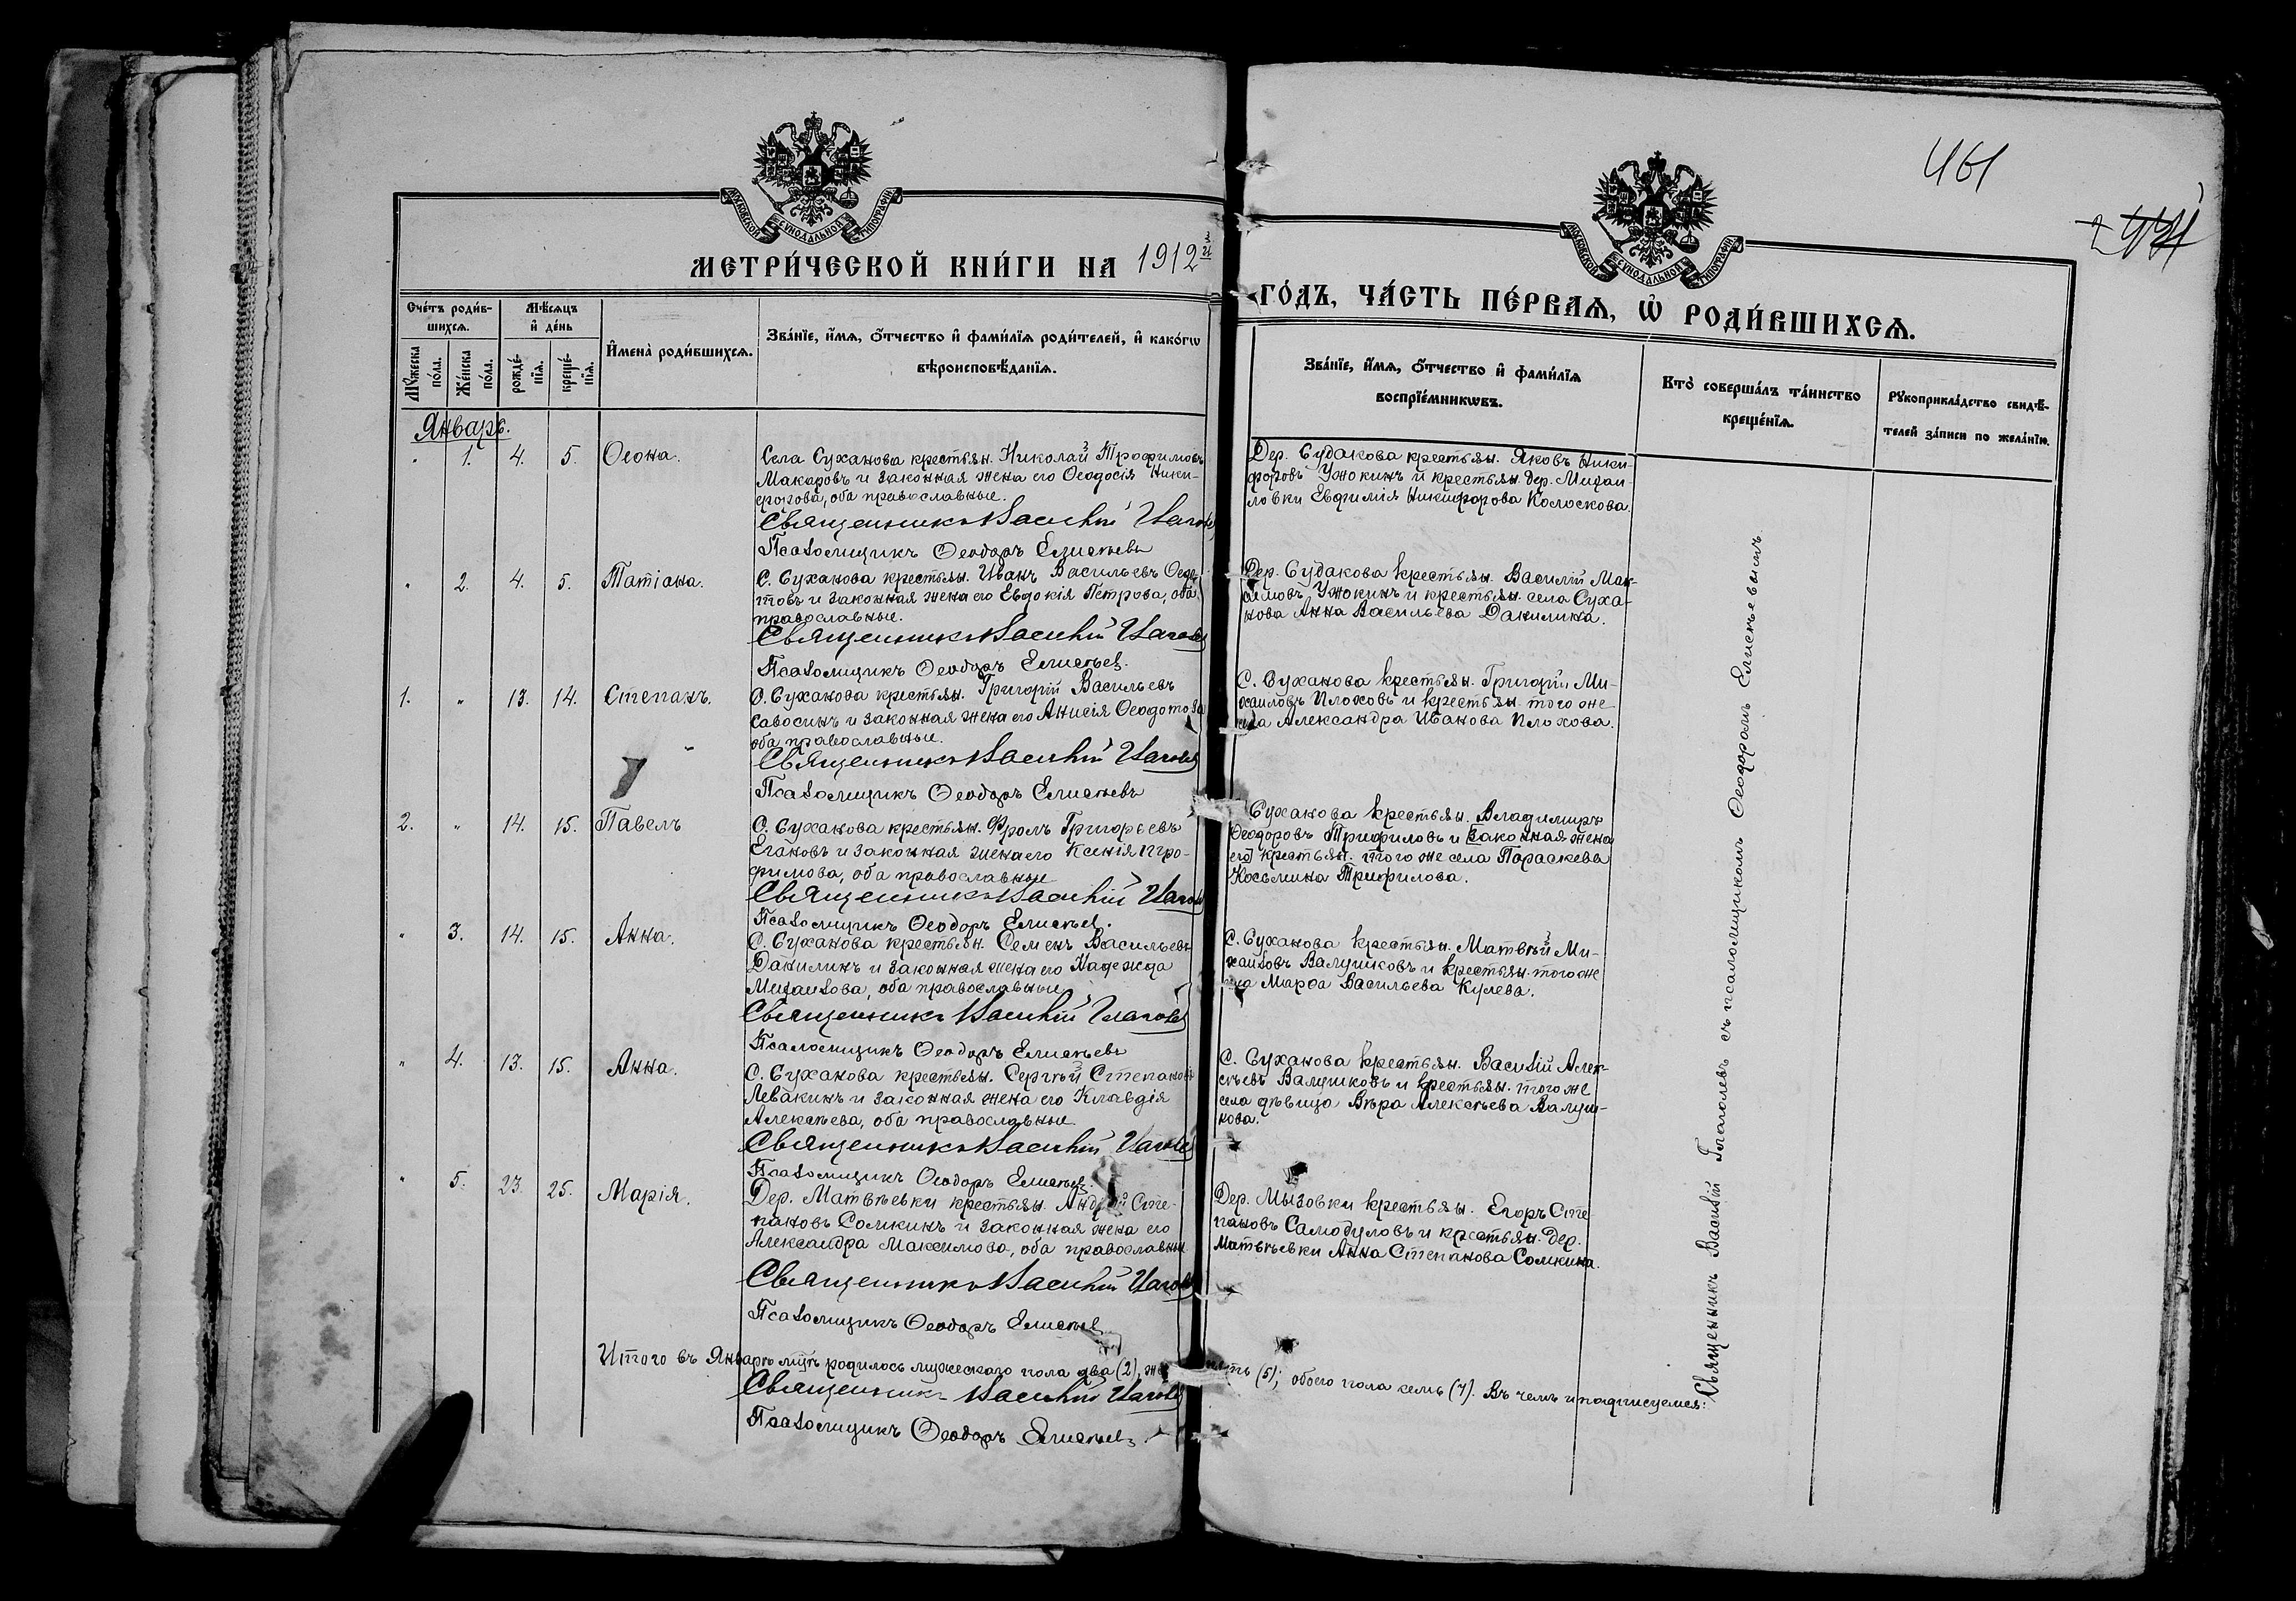 461
МОСКОВСКОЙ СѴНОДАЛЬНОЙ ТИПОГРАФІИ
МОСКОВСКОЙ СѴНОДАЛЬНОЙ ТИПОГРАФІИ
МЕТРИ́ЧЕСКОЙ КНИ́ГИ НА 1912 й
ГО́ДЪ, ЧА́СТЬ ПЕ́РВАѦ, Ѡ҆ РОДИ́ВШИХСѦ.
Сче́тъ роди́в-
шихсѧ.
Мꙋ́жеска по́ла.
Же́нска по́ла.
Мѣ́сѧцъ
и҆ де́нь
рожде́-
нїѧ.
креще́-
нїѧ.
И҆мена̀ роди́вшихсѧ.
Зва́нїе, и҆́мѧ, ѻ҆́тчество и҆ фами́лїѧ роди́телей, и҆ како́гѡ
вѣроисповѣ́данїѧ.
Зва́нїе, и҆́мѧ, ѻ҆́тчество и҆ фами́лїѧ
воспрїе́мникѡвъ.
Кто̀ соверша́лъ та́инство
креще́нїѧ.
Рꙋкоприкла́дство свидѣ́-
телей за́писи по жела́нїю.
Январь.
" 1. 4. 5. Ѳеона.
Села Суханова крестьян. Николай Трофимовъ
Макаровъ и законная жена его Ѳеодосія Ники-
форова, оба православные.
Священникъ Василій
Псаломщикъ Ѳеодоръ Елисѣевъ
Дер. Судакова крестьян. Яковъ Ники-
форовъ Ужокинъ и крестьян. дер. Михаи-
ловки Евфимія Никифорова Колоскова.
" 2. 4. 5. Татіана.
С. Суханова крестьян. Иванъ Васильевъ
и законная жена его Евдокія Петрова, оба
православные.
Священникъ Василій
Псаломщикъ Ѳеодоръ Елисѣев.
Дер. Судакова крестьян. Василій Мак-
симовъ Ужокинъ и крестьян. села Суха-
нова Анна Васильева Данилина.
1. " 13. 14. Степанъ.
С. Суханова крестьян. Григорій Васильевъ
Савосинъ и законная жена его Анисія Ѳеодотова
оба православные.
Священникъ Василій
Псаломщикъ Ѳеодоръ Елисѣевъ
С. Суханова крестьян. Григорій Ми-
хаиловъ Плоховъ и крестьян. того же
села Александра Иванова Плохова.
2. " 14. 15. Павелъ
С. Суханова крестьян. Фролъ Григорьевъ
Егановъ и законная жена его Ксенія Тро-
фимова, оба православные
Священникъ Василій
Псаломщикъ Ѳеодоръ Елисѣев.
Суханова крестьян. Владимиръ
Ѳеодоровъ Трифиловъ и [законная жена
его] крестьян. того же села Параскева
Косьмина Трифилова.
" 3. 14. 15. Анна.
С. Суханова крестьян. Семенъ Васильевъ
Данилинъ и законная жена его Надежда
Михаилова, оба православные
Священникъ Василій
Псаломщикъ Ѳеодоръ Елисѣевъ
С. Суханова крестьян. Матвѣй Ми-
хаиловъ Валушковъ и крестьян. того же
села Марѳа Васильева Кулева.
" 4. 13. 15. Анна.
С. Суханова крестьян. Сергѣй Степановъ
Левакинъ и законная жена его Клавдія
Алексѣева, оба православные.
Священникъ Василій
Псаломщикъ Ѳеодоръ Елисѣев.
С. Суханова крестьян. Василій Алек-
сѣевъ Валушковъ и крестьян. того же
села дѣвица Вѣра Алексѣева Валуш-
кова.
" 5. 23. 25. Марія.
Дер. Матвѣевки крестьян. Андрей Сте-
пановъ Сомкинъ и законная жена его
Александра Максимова, оба православные
Священникъ Василій
Псаломщикъ Ѳеодоръ Елисѣев
Дер. Мызовки крестьян. Егоръ Сте-
пановъ Самодуловъ и крестьян. дер.
Матвѣевки Анна Степанова Сомкина.
Священникъ Василій Глаголевъ съ псаломщикомъ Ѳеодоромъ Елисѣевымъ
Итого въ Январѣ мцѣ родилось мужескаго пола два (2), (5); обоего пола семь (7). Въ чемъ и подписуемся:
Священникъ Василій
Псаломщикъ Ѳеодоръ Елисѣевъ